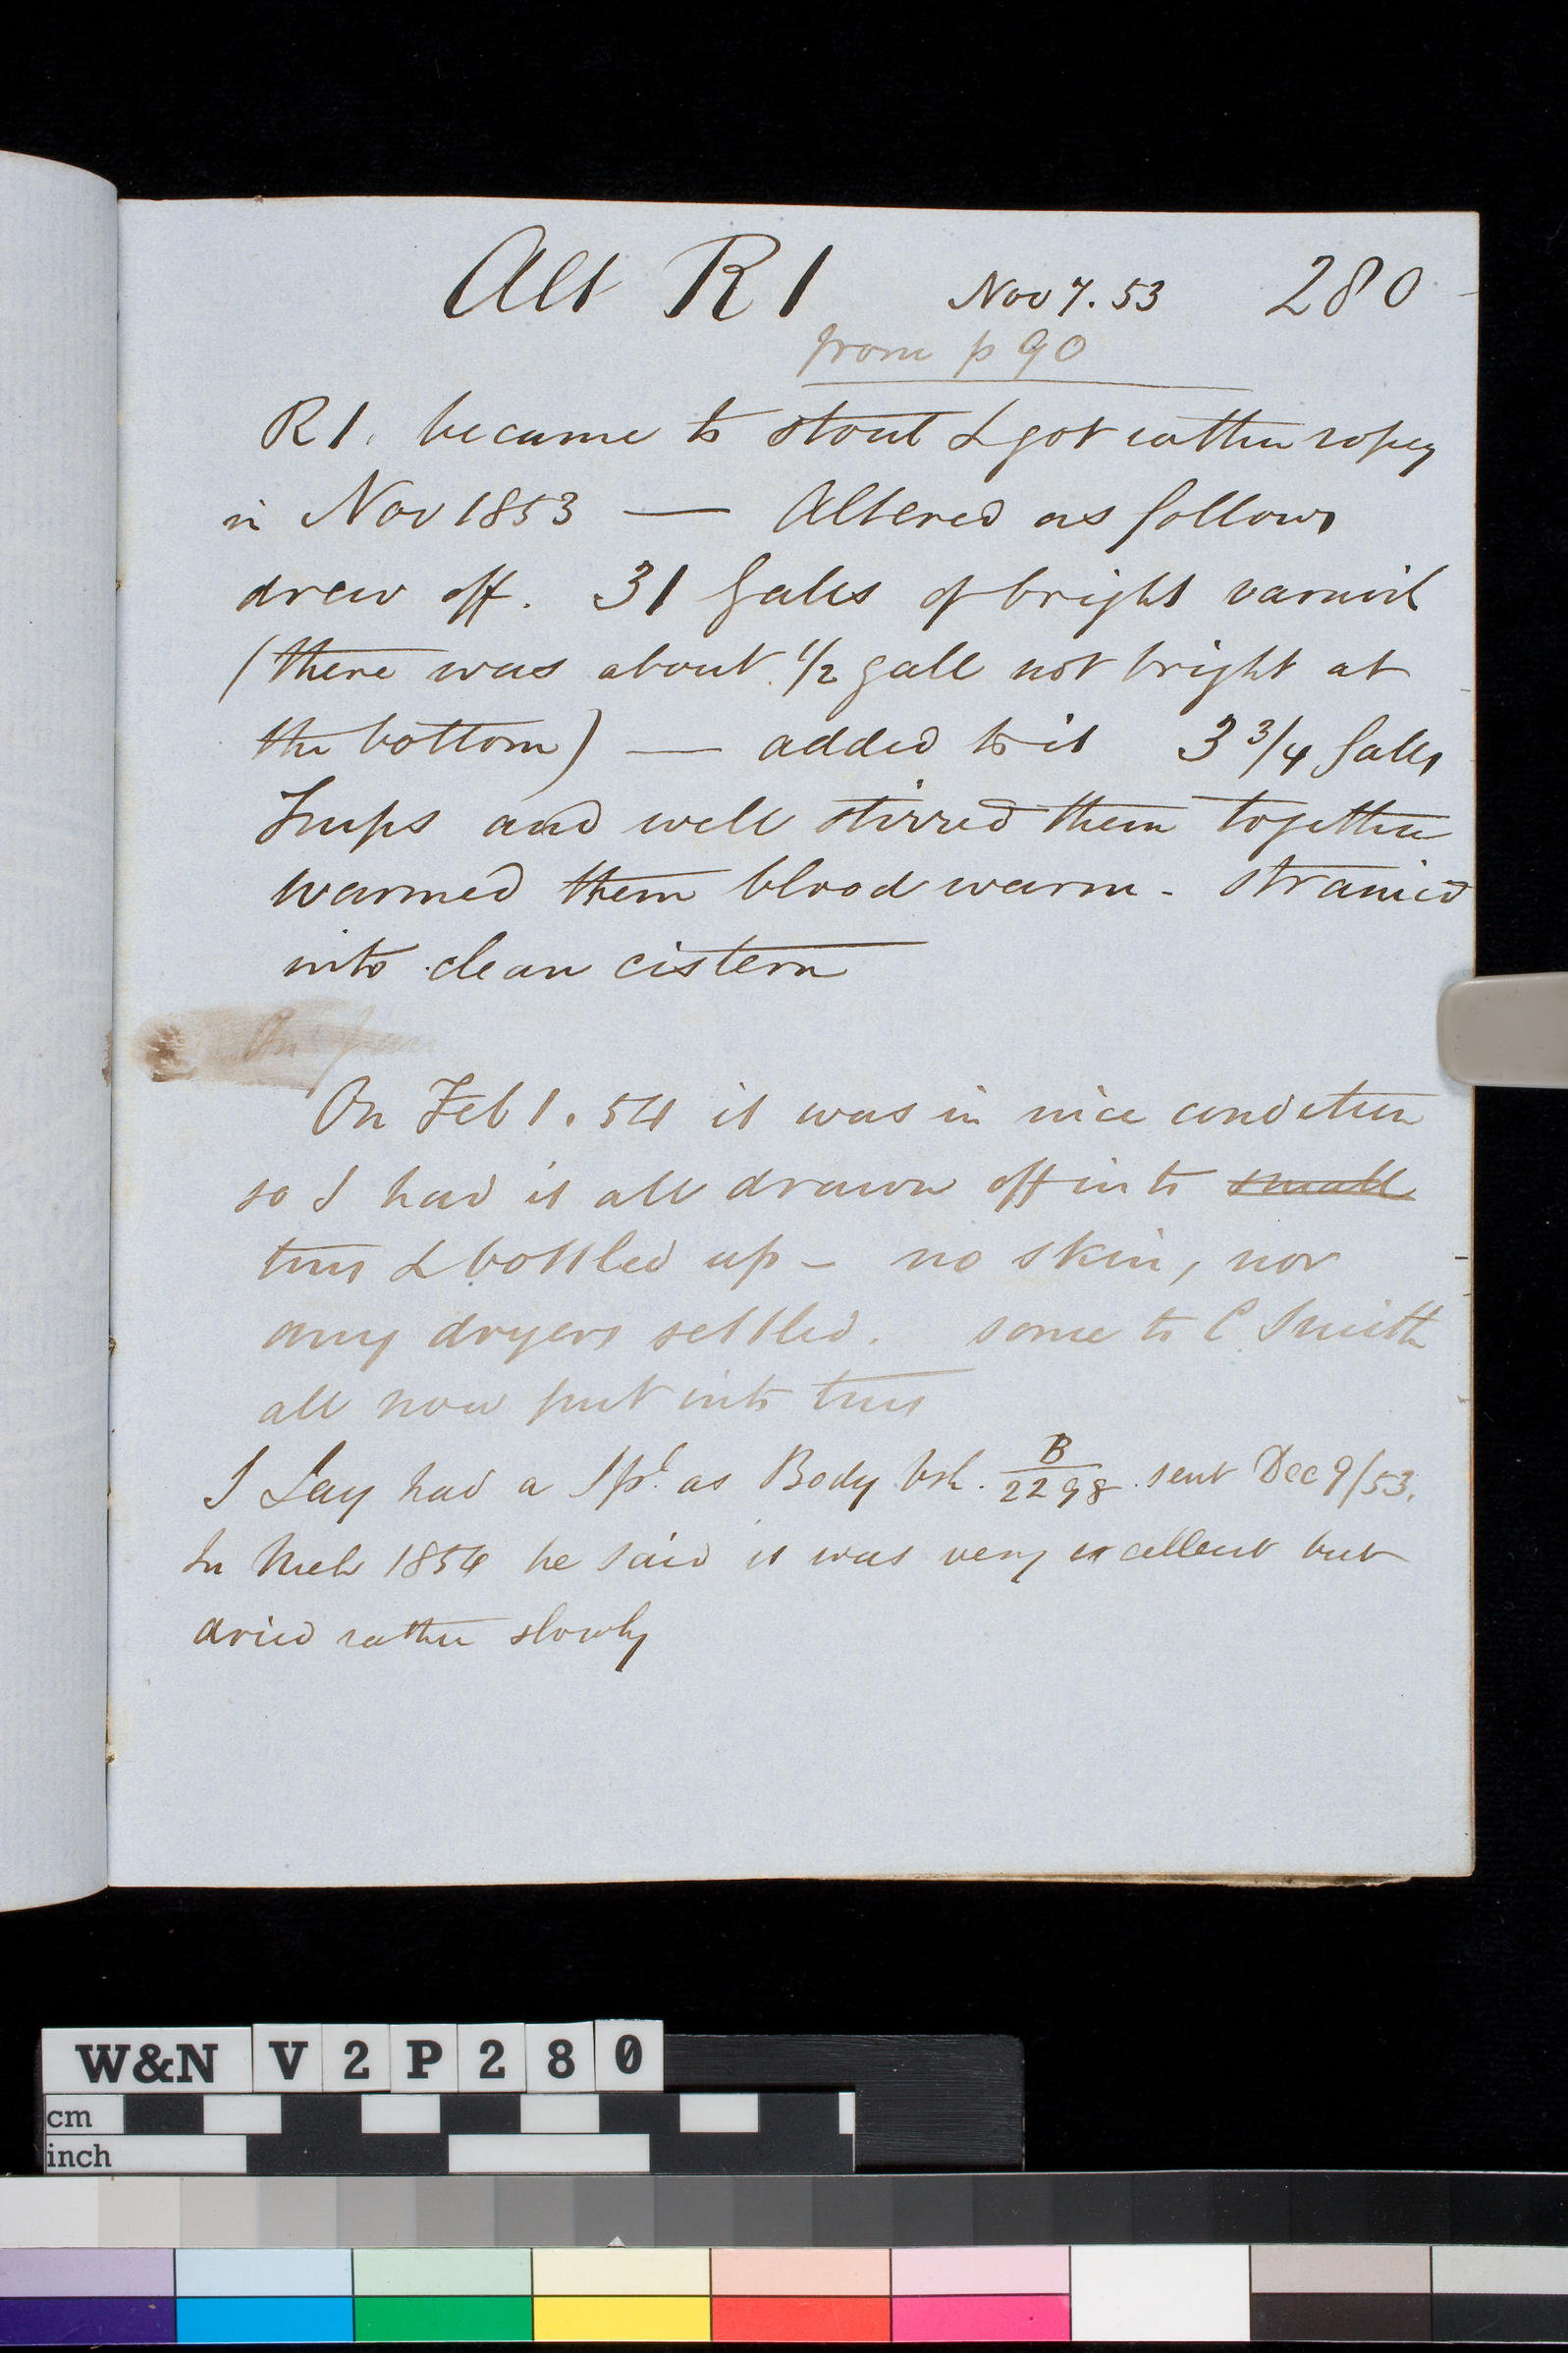 Alt R1 Nov 7. 53 280
from p 90
R1. became to stout & got rather ropey
in Nov 1853 — Altered as follows
drew off. 31 Galls of bright varnish
(there was about 1/2 gall not bright at
the bottom) — added to it 3 3/4 Galls
Turps and well stirred them together
warmed them blood warm - strained
into clean cistern
On
On Feb 1. 54 it was in nice condition
so I had it all drawn off into small
tins & bottled up - no skin, nor
any dryers settled. some to C. Smith
all now put into tins
I Lay had a 1 pt. as Body vsh. B/2298 sent Dec 9/53.
In Mch 1854 he said it was very excellent but
dried rather slowly
W&N V2P280
cm
inch